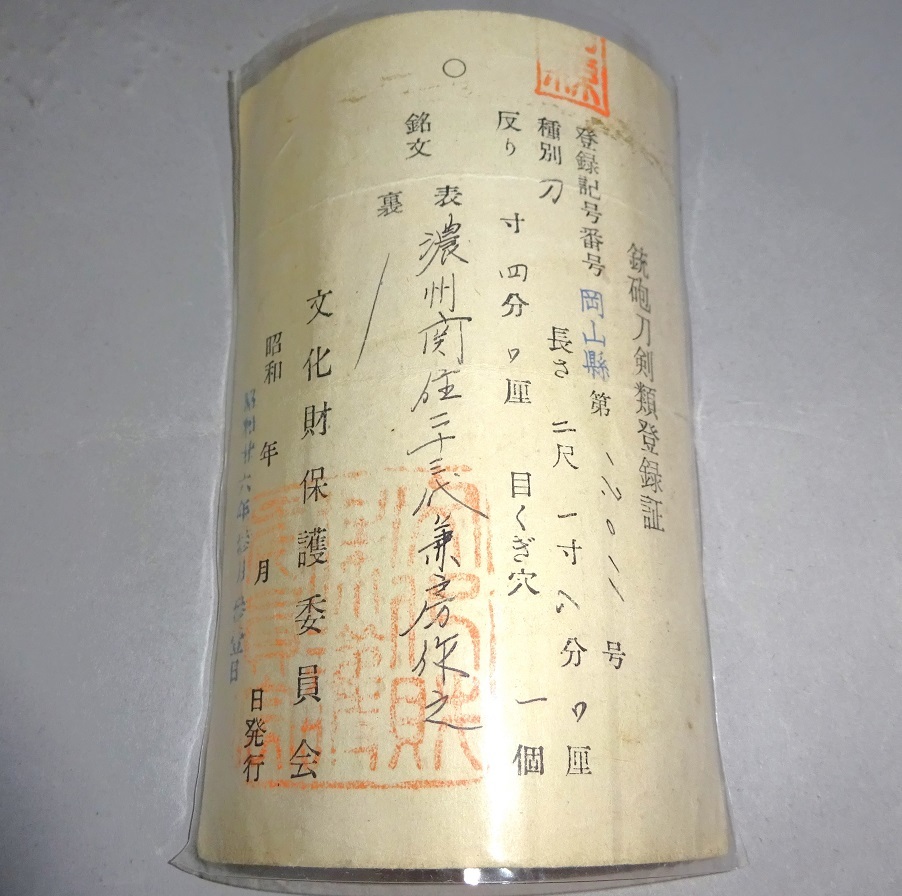 銃砲刀剣類登録証
登録記号番号 岡山縣 第 12011 号
種別 刀 長さ 二尺 一寸 八分 厘
反り 寸 四分 厘 目くぎ穴 一個
銘文 表 濃州関住二十三代兼房作之
裏
文化財保護委員会
昭和 年 月 日発行
昭和廿六年